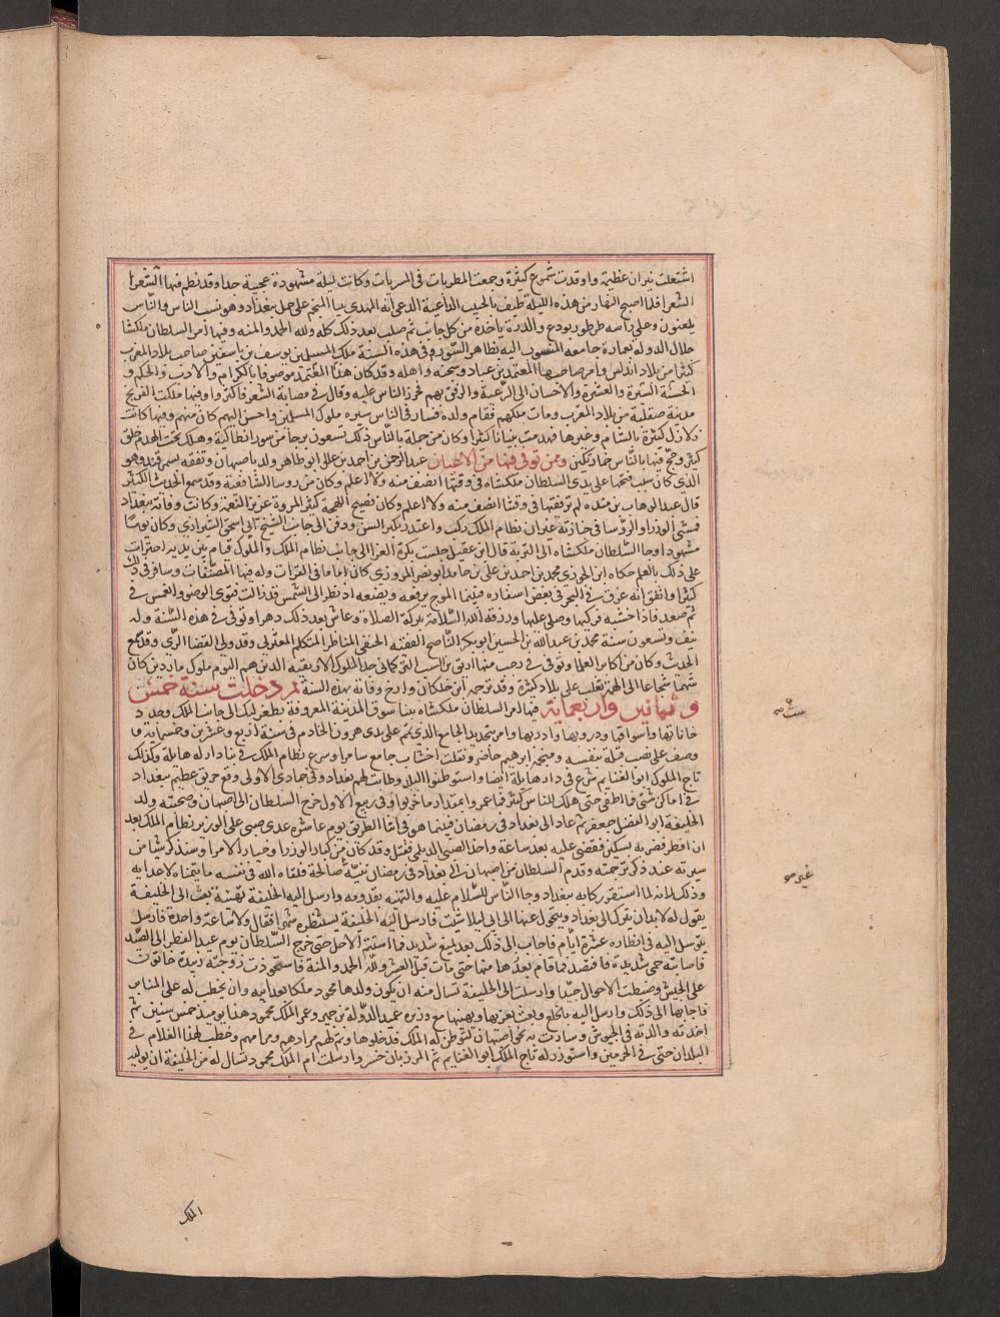 اشتعلت نيران عظيمة واوقدت شموع كثيرة وجمعت المطربات في السريات وكانت ليلة مشهودة عجيبة جدا وقد نظم فيها الشعرا
الشعر فلما اصبح النهار من هذه الليلة طيف بالخبيث الداعية الذي ادعى انه المهدي تيا المنجم على جمل ببغداد وهو يسب الناس والناس
يلعنون وعلى راسه طرطور بودع والدرة ياخذه من كل جانب ثم صلب بعد ذلك كله ولله الحمد والمنه وفيها امر السلطان ملكشا
جلال الدولة بعمارة جامعه المنسوب اليه بظاهر السور وفي هذه السنة ملك المسلمين يوسف بن تاشفين صاحب بلاد المغرب
كثيرا من بلاد اندلس واسر صاحبها المعتمد بن عباد وسجنه واهله وقد كان هذا المعتمد موصوفا بالكرام والادب والحكم و
الحسنة السيرة والعشرة والاحسان الى الرعية والرفق بهم فحزن الناس عليه وقال في مصابه الشعر فاكثروا وفيها ملكت الفرنج
مدينة صقلية من بلاد المغرب ومات ملكهم فقام ولده فسار في الناس سيره ملوك المسلمين واحسن اليهم كان منهم وفيها كانت
زلازل كثيرة بالشام وغيرها فهدمت بنيانا كثيرا وكان من جملة بالناس ذلك تسعون برجا من سور انطاكية وهلك تحت الهدم خلق
كثير وحج فيها بالناس خمارتكين ومن توفي فيها من الاعيان عبد الرحمن بن احمد بن علك ابو طاهر ولد باصبهان وتفقه بسمرقند وهو
الذي كان سبب فتحها على يدي السلطان ملكشاه في وقتها انصف منه ولا اعلم وكان من روسا الشافعية وقد سمع الحديث الكثير
قال عبد الوهاب بن منده لم نر فقيها في وقتنا انصف منه ولا اعلم وكان فصيح اللهجة كثير المروة عزيز النعمة وكانت وفاته ببغداد
فمشى الوزرا والروسا في جنازته غير ان نظام الملك ركب واعتذر بكبر السن ودفن الى جانب الشيخ ابي اسحق الشيرازي وكان يوما
مشهودا وجا السلطان ملكشاه الى التربة قال ابن عقيل جلست بكرة العزا الى جانب نظام الملك والملوك قيام بين يديه اجترات
على ذلك بالعلم حكاه ابن الجوزي محمد بن احمد بن علي بن حامد ابو نصر المروزي كان اماما في القراات وله فيها المصنفات وسافر في ذلك
كثيرا واتفق انه غرق في البحر في بعض اسفاره فبينما الموج يرفعه ويضعه اذ نظر الى الشمس قد زالت فنوى الوضو والغمس في
ثم صعد فاذا خشبة فركبها وصلى عليها ورزقه الله السلامة ببركة الصلاة وعاش بعد ذلك دهرا وتوفي في هذه السنة وله
نيف وتسعون سنة محمد بن عبد الله بن الحسين ابو بكر الناصح الفقيه الحنفي المناظر المتكلم المعتزلي وقد ولي القضا الري وقد سمع
الحديث وكان من اكابر العلما وتوفي في رجب منها ارتق بن السب التركماني جد الملوك الارتقيه الذين هم اليوم ملوك ماردين كان
شهما شجاعا عالي الهمة تغلب على بلاد كثيرة وقد ترجمه ابن خلكان وارخ وفاته بهذه السنة ثم دخلت سنة خمس
وثمانين واربعماية فيها امر السلطان ملكشاه ببنا سوق المدينة المعروفة بطغرلبك الى جانب الملك وجدد
خاناتها واسواقها ودروبها وادربها وامر بتجديد الجامع الذي تم على يدي هرون الخادم في سنة اربع وعشرين وخمسماية ف
وصف على نصب قبلته بنفسه ومنجمه ابرهيم حاضر ونقلت اخشاب جامع سامرا وشرع نظام الملك في بنا دار له هايلة وكذلك
تاج الملوك ابو الغنايم شرع في دار هايلة ايضا واستوطنوا الليل وطابت لهم بغداد وفي جمادى الاولى وقع حريق عظيم ببغداد
في اماكن شتى فما اطفي حتى هلك للناس كثير فما عمروا بمقدار ما خربوا وفي ربيع الاول خرج السلطان الى اصبهان وصحبته ولد
الخليفة ابو الفضل جعفر ثم عاد الى بغداد في رمضان فبينما هو في اثنا الطريق يوم عاشره عدى صبي على الوزير نظام الملك بعد
ان افطر فضربه بسكين فقضى عليه بعد ساعة واخذ الصبي الديلمي فقتل وقد كان من كبار الوزرا وخيار الامرا وسنذكر شيا من
سيرته عند ذكر ترجمته وقدم السلطان من اصبهان الى بغداد في رمضان بنية صالحة فلقاه الله في نفسه ما يتمناه لاعدايه
وذلك لانه لما استقر ركابه ببغداد وجا الناس للسلام عليه والتهنه بقدومه وارسل اليه الخليفة يهنئه بعث الى الخليفة
يقول له لابد ان تنزل لي بغداد وتتحول عنها الى اي البلاد شيت فارسل اليه الخليفة يستنظره شهرا فقال ولا ساعة واحدة فارسل
يتوسل اليه في انظاره عشرة ايام فاجاب الى ذلك بعد تمنع شديد فما استتم الاجل حتى خرج السلطان يوم عيد الفطر الى الصيد
فاصابته حمى شديدة فافتصد فما قام بعدها منها حتى مات قبل العشر ولله الحمد والمنة فاستحوذت زوجته زبيدة خاتون
على الجيش وضبطت الاحوال جيدا وارسلت الى الخليفة تسال منه ان يكون ولدها محمود ملكا بعد ابيه وان يخطب له على المنابر
فاجابها الى ذلك وارسل اليه بالخلع وبعث يعزيها ويهنيها مع وزيره عميد الدولة بن جهير وعمر الملك محمود هذا يوميذ خمس سنين ثم
اخذته والدته في الجيوش وسارت به نحو اصبهان ليتوطن له الملك فدخلوها وتم لهم مرادهم ومرامهم وخطب لهذا الغلام في
البلدان حتى في الحرمين واستوزر له تاج الملك ابو الغنايم ثم المرزبان خسرو وارسلت ام الملك محمود تسال له من الخليفة ان يوليه
الملك